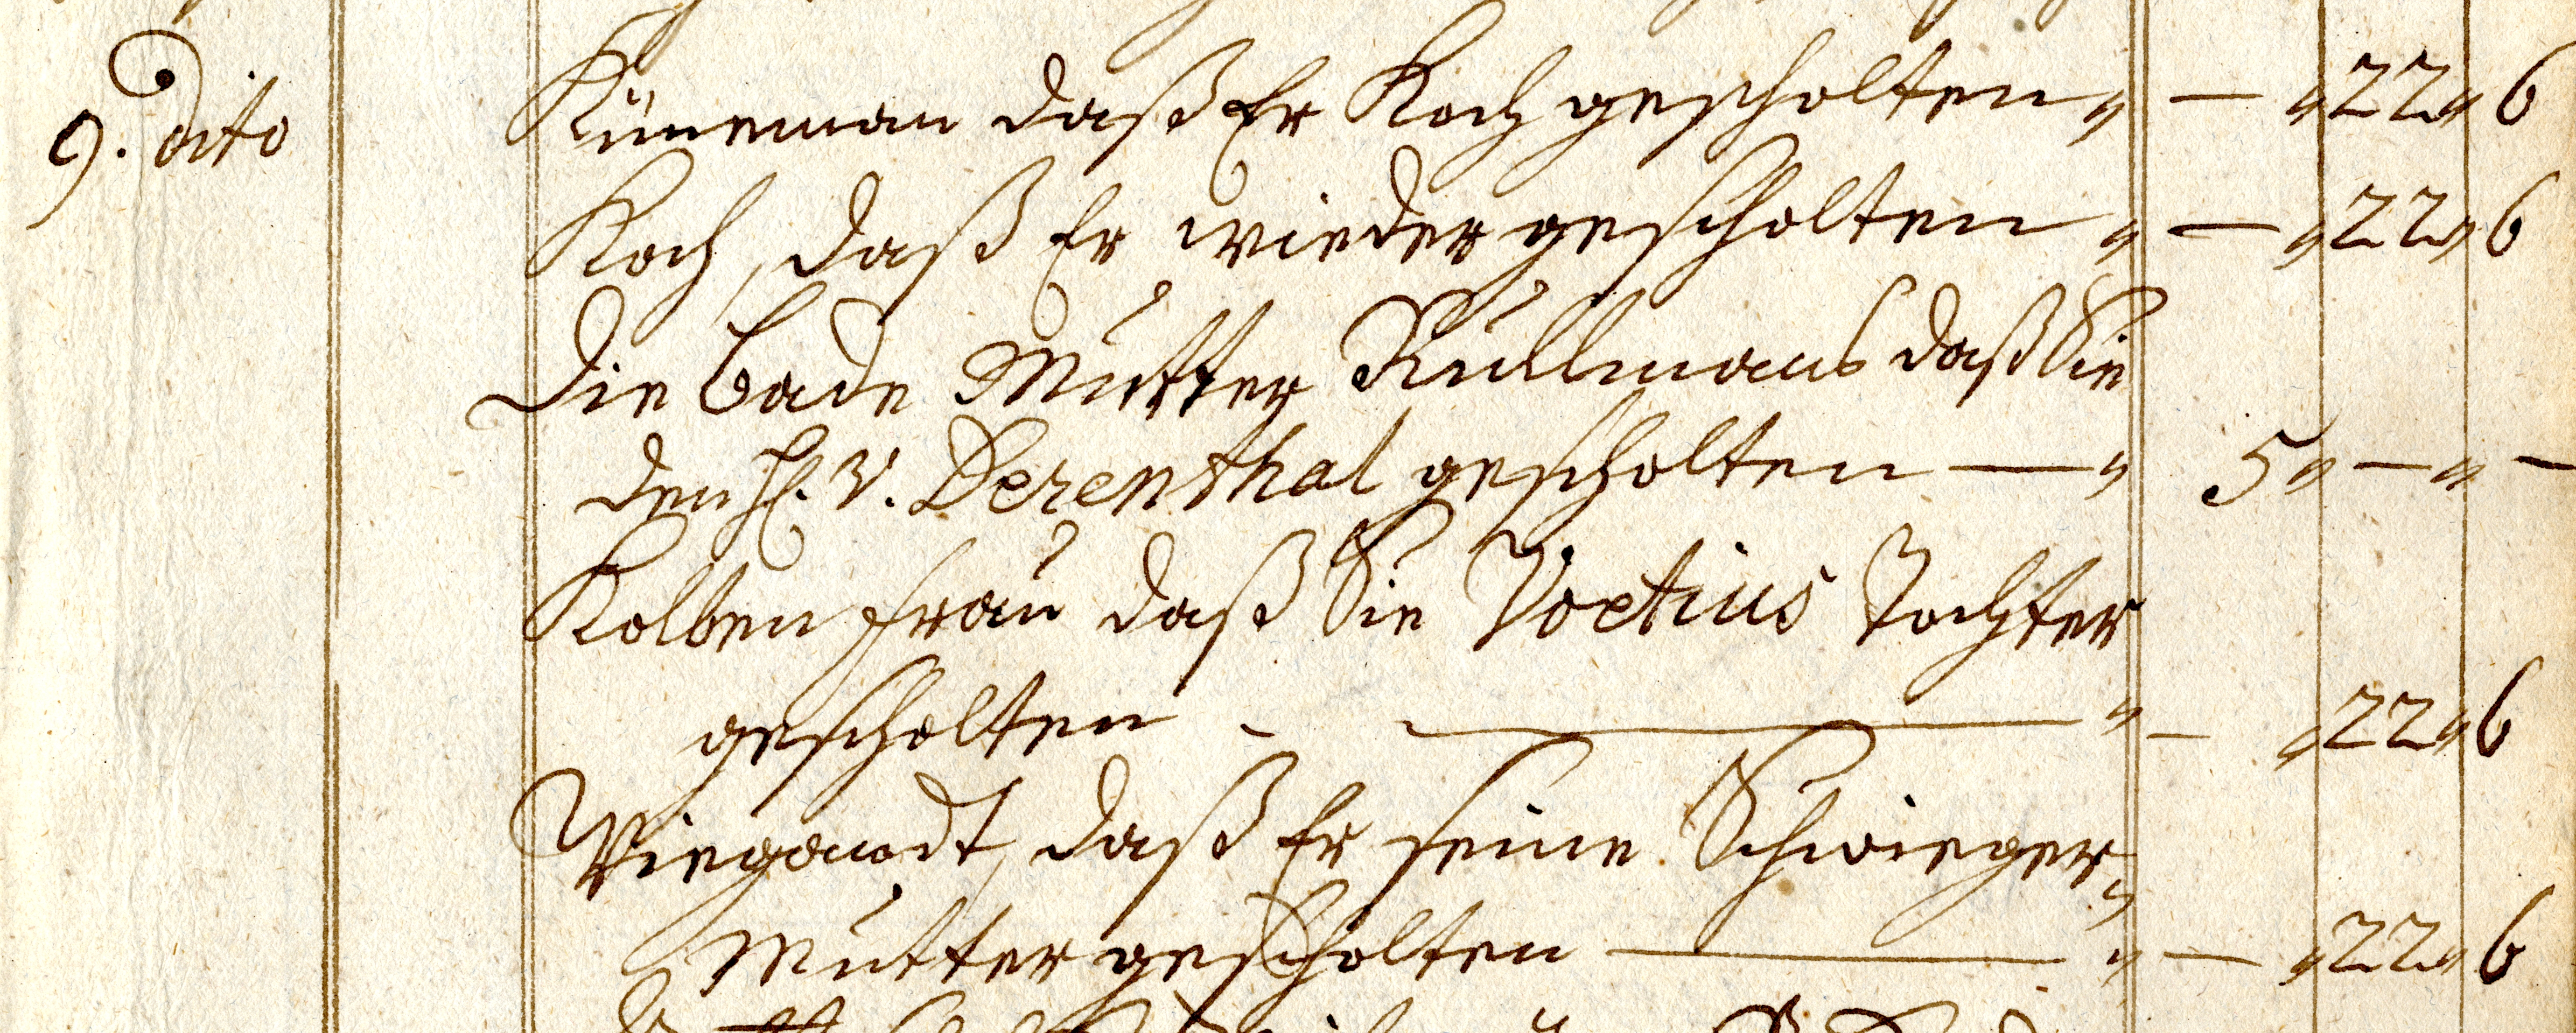 9. dito Küneman daß Er Koch gescholten „ — „ 22 „ 6
Koch, daß Er wieder gescholten „ — „ 22 „ 6
Die Bade Mutter Rullmans daß Sie
den H. v. Derenthal gescholten — „ 5 „ — „ —
Kolben frau daß Sie Voetius Tochter
gescholten - — „ — „ 22 „ 6
Wiegandt, daß Er seine Schwieger„
Mutter gescholten — „ — „ 22 „ 6